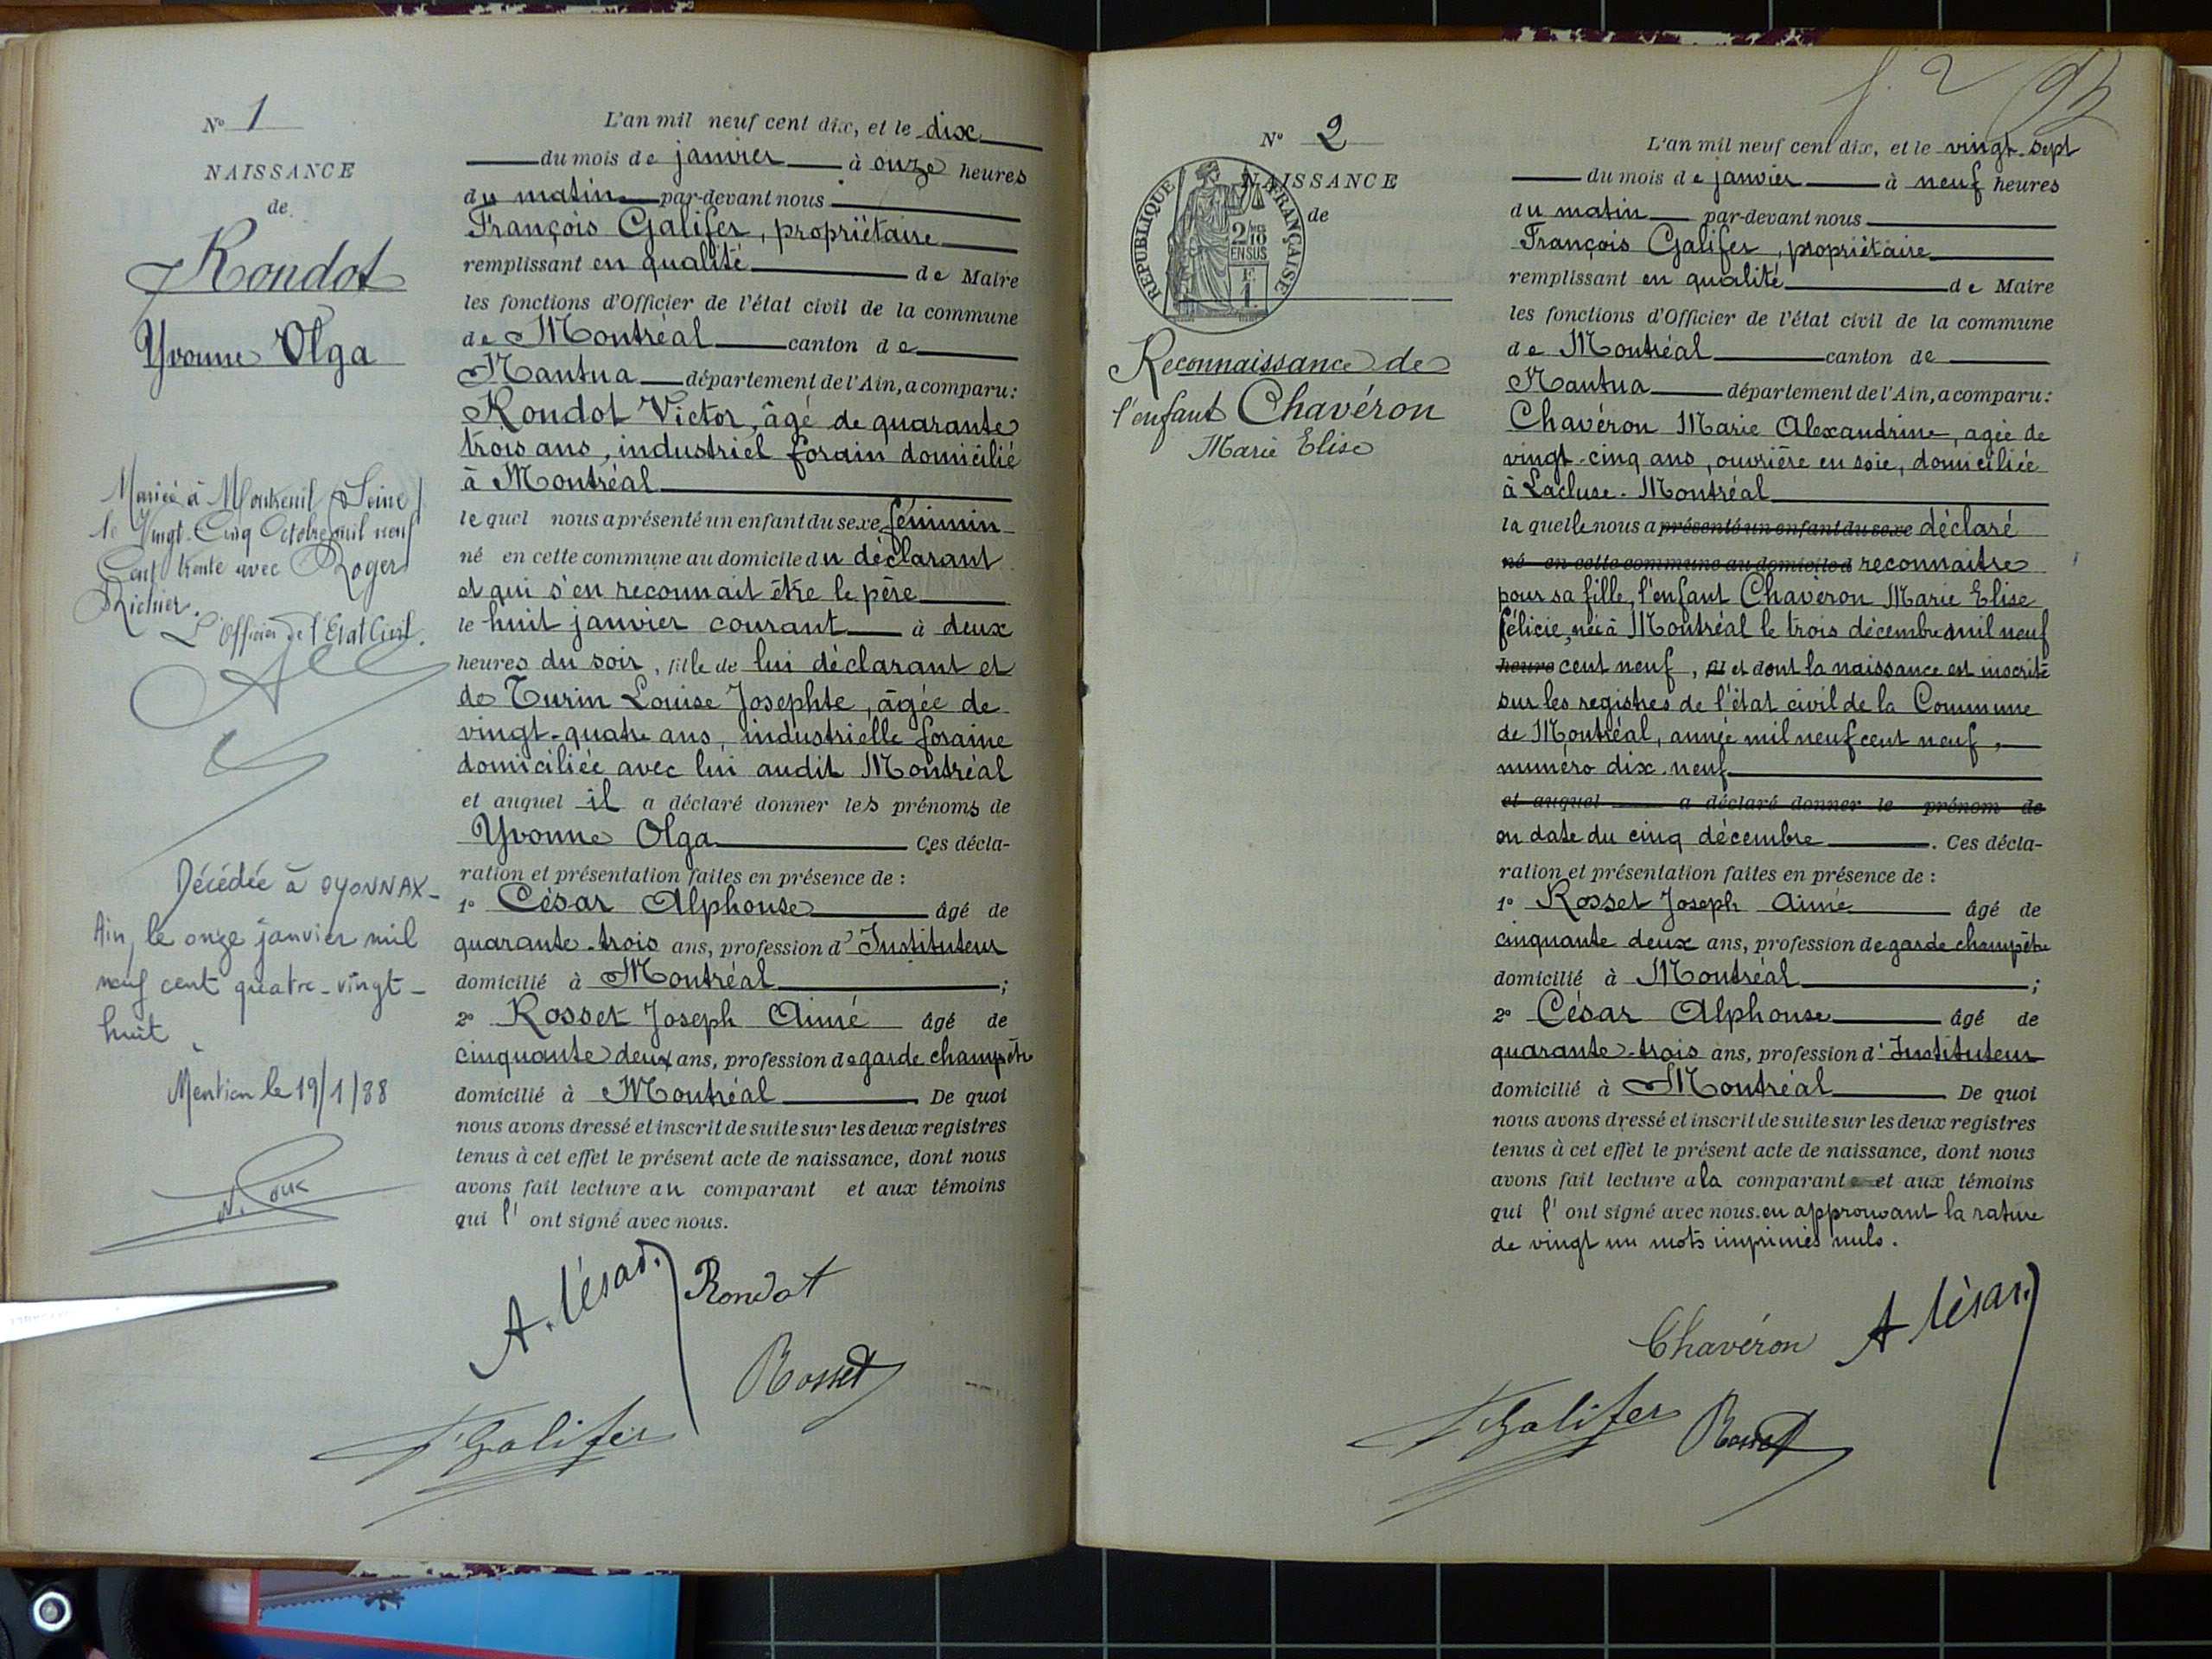 N° 1
NAISSANCE
de
Rondot
Yvonne Olga
Mariée à Montreuil (Seine)
le Vingt-Cinq Octobre mil neuf
Cent trente avec Roger
Richier.
L'Officier de l'Etat Civil.
Décédée à OYONNAX-
Ain, le onze janvier mil
neuf cent quatre-vingt-
huit.
Mention le 19/1/88
L'an mil neuf cent dix, et le dix
du mois de janvier à onze heures
du matin par-devant nous
François Galifer, propriétaire
remplissant en qualité de Maire
les fonctions d'Officier de l'état civil de la commune
de Montréal canton de
Nantua département de l'Ain, a comparu:
Rondot Victor, âgé de quarante
trois ans, industriel forain domicilié
à Montréal
le quel nous a présenté un enfant du sexe féminin
né en cette commune au domicile du déclarant
et qui s'en reconnait être le père
le huit janvier courant à deux
heures du soir, fille de lui déclarant et
de Turin Louise Josephte, âgée de
vingt-quatre ans, industrielle foraine
domiciliée avec lui audit Montréal
et auquel il a déclaré donner les prénoms de
Yvonne Olga Ces décla-
ration et présentation faites en présence de :
1° César Alphonse âgé de
quarante-trois ans, profession d'Instituteur
domicilié à Montréal ;
2° Rosset Joseph Aimé âgé de
cinquante deux ans, profession de garde champêtre
domicilié à Montréal. De quoi
nous avons dressé et inscrit de suite sur les deux registres
tenus à cet effet le présent acte de naissance, dont nous
avons fait lecture au comparant et aux témoins
qui l'ont signé avec nous.
A. César. Rondot
Rosset
F Galifer
f. 2
N° 2
NAISSANCE
de
REPUBLIQUE FRANÇAISE
2/10
EN SUS
Reconnaissance de
l'enfant Chavéron
Marie Elise
L'an mil neuf cent dix, et le vingt-sept
du mois de janvier à neuf heures
du matin par-devant nous
François Galifer, propriétaire
remplissant en qualité de Maire
les fonctions d'Officier de l'état civil de la commune
de Montréal canton de
Nantua département de l'Ain, a comparu:
Chavéron Marie Alexandrine, agée de
vingt-cinq ans, ouvrière en soie, domiciliée
à Lacluse-Montréal
la quelle nous a présenté un enfant du sexe déclaré
né en cette commune au domicile d reconnaitre
pour sa fille, l'enfant Chavéron Marie Elise
félicie, née à Montréal le trois décembre mil neuf
heure cent neuf, et dont la naissance est inscrite
sur les registres de l'état civil de la Commune
de Montréal, année mil neuf cent neuf,
numéro dix-neuf
et auquel a déclaré donner le prénom de
en date du cinq décembre. Ces décla-
ration et présentation faites en présence de :
1° Rosset Joseph Aimé âgé de
cinquante deux ans, profession de garde champêtre
domicilié à Montréal ;
2° César Alphonse âgé de
quarante-trois ans, profession d'Instituteur
domicilié à Montréal De quoi
nous avons dressé et inscrit de suite sur les deux registres
tenus à cet effet le présent acte de naissance, dont nous
avons fait lecture a la comparante et aux témoins
qui l'ont signé avec nous. en approuvant la rature
de vingt un mots imprimés nuls.
Chavéron A César.
F Galifer Rosset